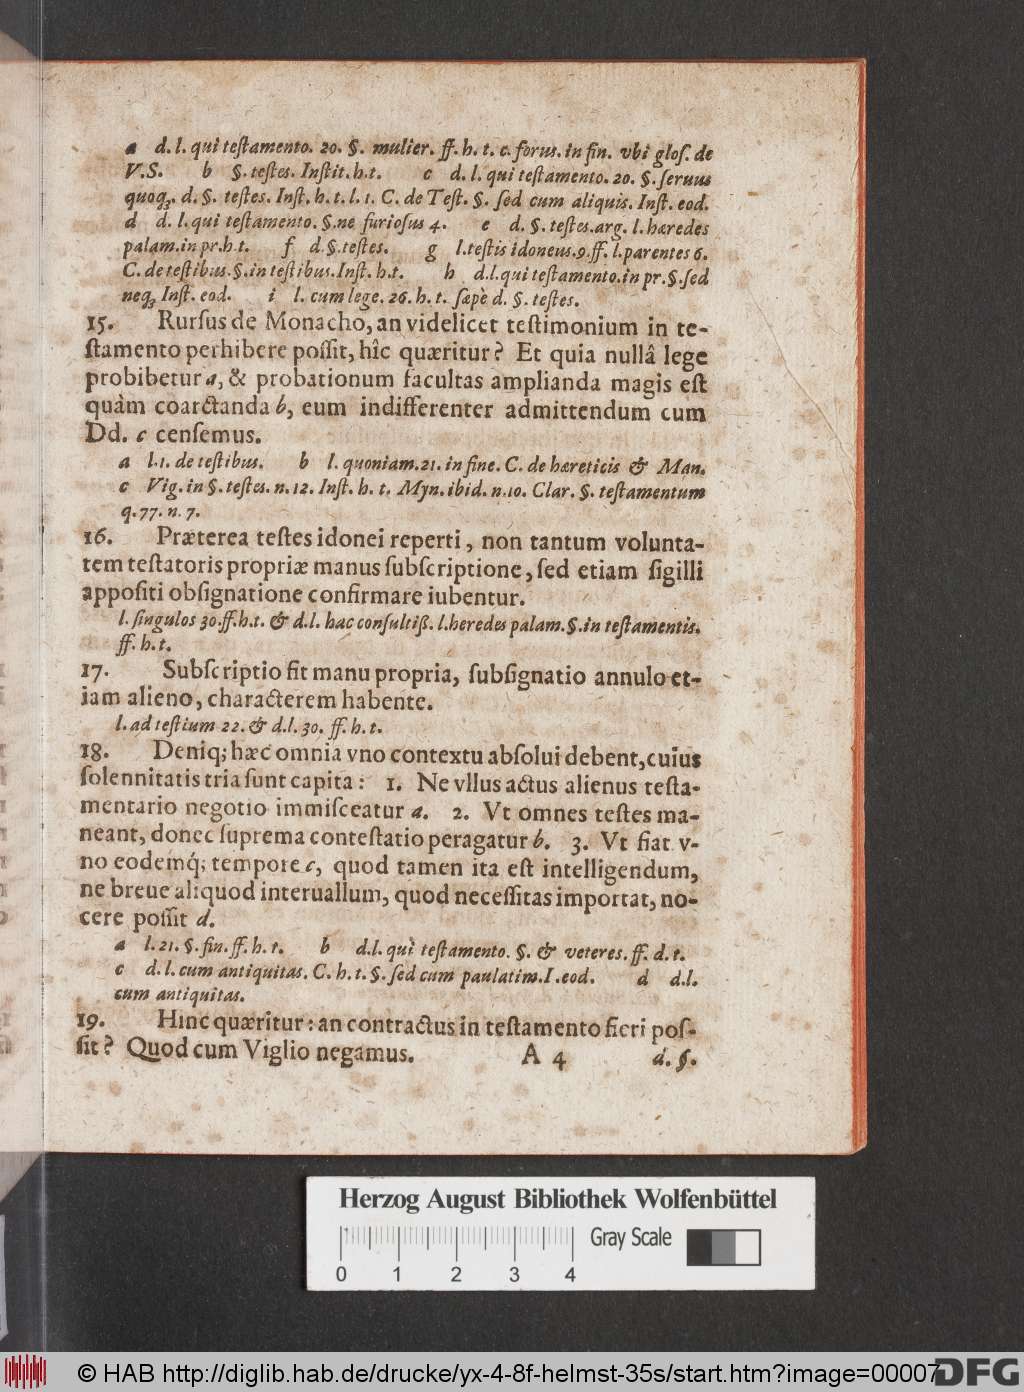 a d. l. qui teſtamento. 20. §. mulier. ff. h. t. c. forus. in fin. vbi gloſ. de
V.S. b §. teſtes. Inſtit. h.t. c d. l. qui teſtamento. 20. §. ſeruus
quoq;. d. §. teſtes. Inſt. h. t. l. 1. C. de Teſt. §. ſed cum aliquis. Inſt. eod.
d d. l. qui teſtamento. §. ne furioſus 4. e d. §. teſtes. arg. l. hæredes
palam. in pr. h.t. f d. §. teſtes. g l. teſtis idoneus. 9. ff. l. parentes 6.
C. de teſtibus. §. in teſtibus. Inſt. h.t. h d.l. qui teſtamento. in pr. §. ſed
neq; Inſt. eod. i l. cum lege. 26. h. t. ſæpè d. §. teſtes.
15. Rurſus de Monacho, an videlicet teſtimonium in te-
ſtamento perhibere poſſit, hîc quæritur? Et quia nullâ lege
probibetur a, & probationum facultas amplianda magis eſt
quàm coarctanda b, eum indifferenter admittendum cum
Dd. c cenſemus.
a l. 1. de teſtibus. b l. quoniam. 21. in fine. C. de hæreticis & Man.
c Vig. in §. teſtes. n. 12. Inſt. h. t. Myn. ibid. n. 10. Clar. §. teſtamentum
q. 77. n. 7.
16. Præterea teſtes idonei reperti, non tantum volunta-
tem teſtatoris propriæ manus ſubſcriptione, ſed etiam ſigilli
appoſiti obſignatione confirmare iubentur.
l. ſingulos 30. ff. h.t. & d.l. hac conſultiß. l. heredes palam. §. in teſtamentis.
ff. h. t.
17. Subſcriptio fit manu propria, ſubſignatio annulo et-
iam alieno, characterem habente.
l. ad teſtium 22. & d.l. 30. ff. h. t.
18. Deniq; hæc omnia vno contextu abſolui debent, cuius
ſolennitatis tria ſunt capita: 1. Ne vllus actus alienus teſta-
mentario negotio immiſceatur a. 2. Vt omnes teſtes ma-
neant, donec ſuprema conteſtatio peragatur b. 3. Vt fiat v-
no eodemq́; tempore c, quod tamen ita eſt intelligendum,
ne breue aliquod interuallum, quod neceſſitas importat, no-
cere poſſit d.
a l. 21. §. fin. ff. h. t. b d.l. quì teſtamento. §. & veteres. ff. d. t.
c d. l. cum antiquitas. C. h. t. §. ſed cum paulatim. I. eod. d d.l.
cum antiquitas.
19. Hinc quæritur: an contractus in teſtamento fieri poſ-
ſit? Quod cum Viglio negamus. A 4 d. §.
Herzog August Bibliothek Wolfenbüttel
Gray Scale
0 1 2 3 4
© HAB http://diglib.hab.de/drucke/yx-4-8f-helmst-35s/start.htm?image=00007
DFG